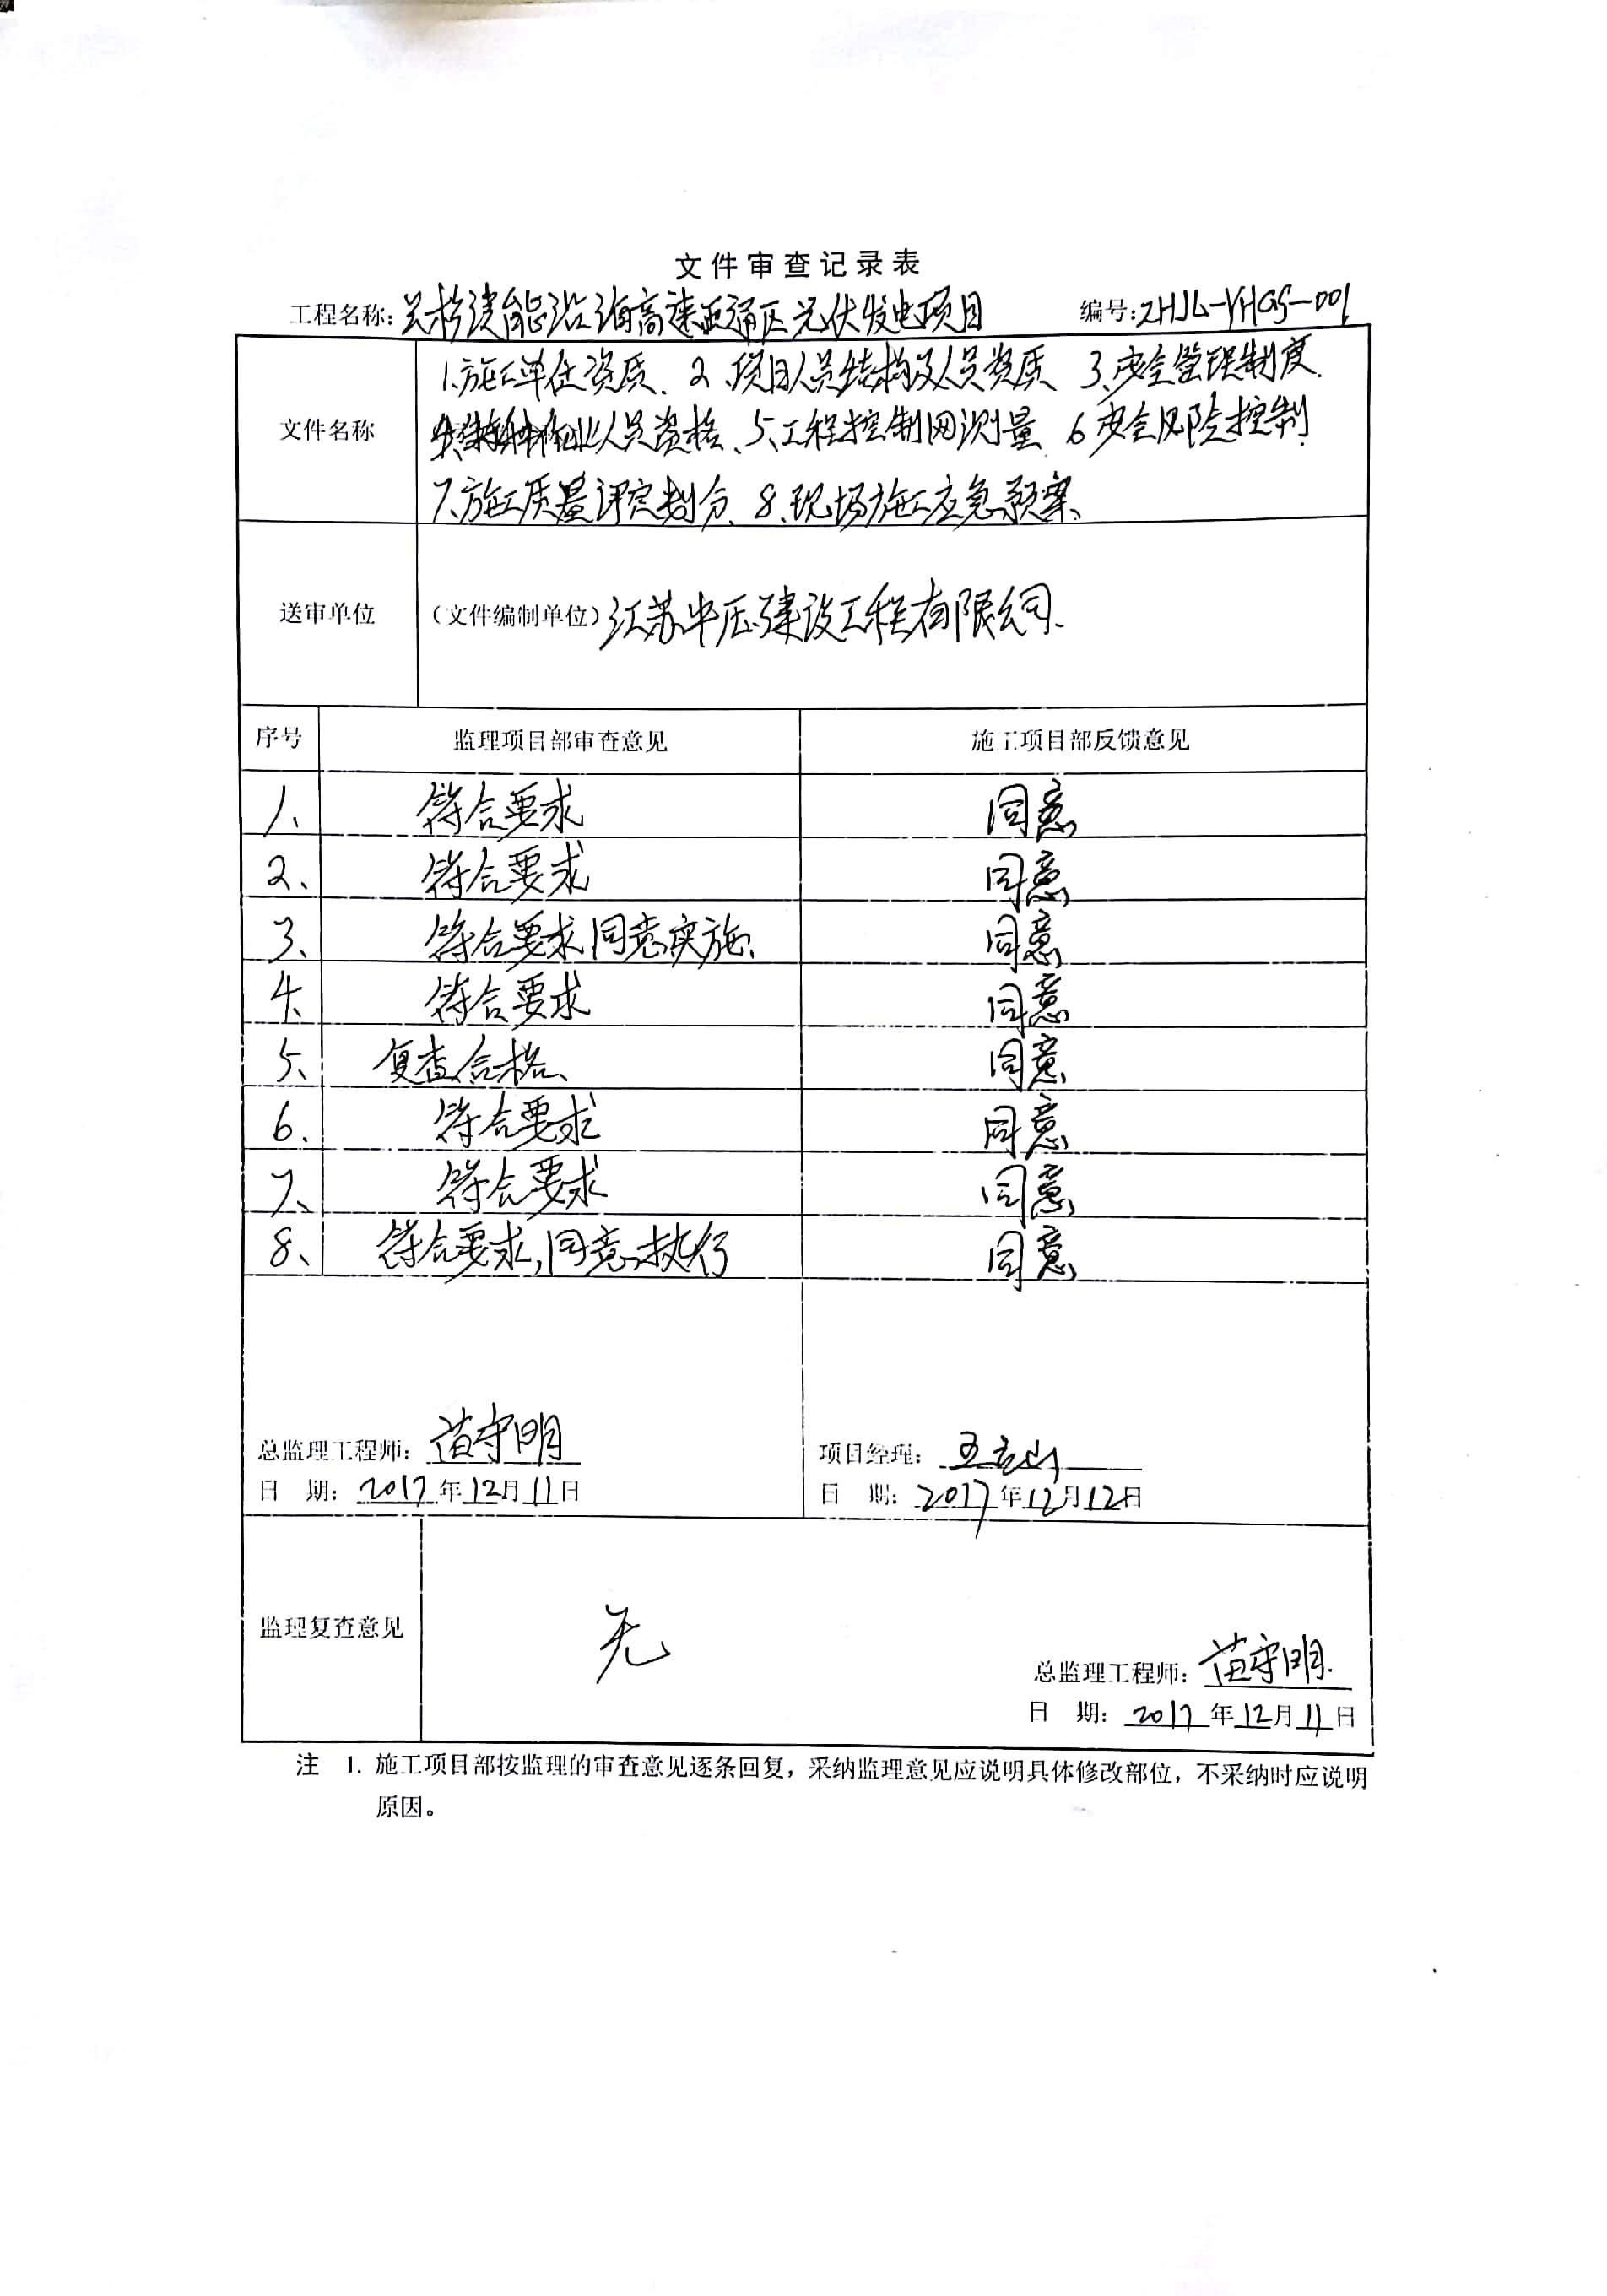 文件审查记录表
工程名称: 沿海高速 区光伏发电项目 编号: ZHJL-YHGS-001
文件名称 1、施工单位资质、2、项目人员结构及人员资质 3、安全管理制度
4、特种作业人员资格、5、工程控制网测量 6 安全风险控制
7、施工质量评定划分、8、现场施工应急预案、
送审单位 (文件编制单位) 江苏中压建设工程有限公司
序号 监理项目部审查意见 施工项目部反馈意见
1、 符合要求 同意
2、 符合要求 同意
3、 符合要求同意实施、 同意
4、 符合要求 同意
5、 复查合格、 同意
6、 符合要求 同意
7、 符合要求 同意
8、 符合要求,同意执行 同意
总监理工程师: 苗守明 项目经理: 王
日 期: 2017年12月11日 日 期: 2017年12月12日
监理复查意见 无
总监理工程师: 苗守明
日 期: 2017年12月11日
注 1. 施工项目部按监理的审查意见逐条回复，采纳监理意见应说明具体修改部位，不采纳时应说明
原因。